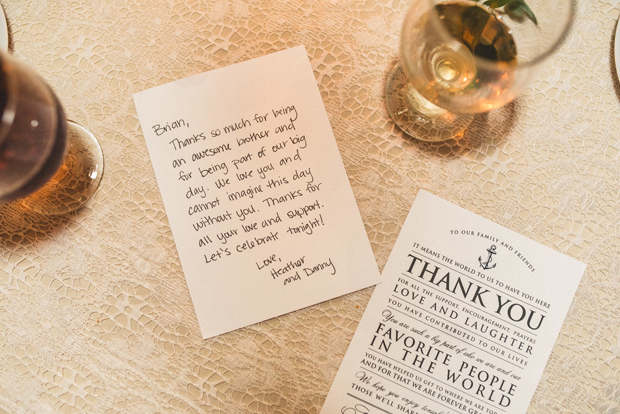 Brian,
Thanks so much for being
an awesome brother and
for being part of our big
day. We love you and
cannot imagine this day
without you. Thanks for
all your love and support.
Let's celebrate tonight!
Love,
Heather
and Danny
TO OUR FAMILY AND FRIENDS
IT MEANS THE WORLD TO US TO HAVE YOU HERE
THANK YOU
FOR ALL THE SUPPORT, ENCOURAGEMENT, PRAYERS
LOVE AND LAUGHTER
YOU HAVE CONTRIBUTED TO OUR LIVES
You are such a big part of who we are and our
FAVORITE PEOPLE
IN THE WORLD
YOU HAVE HELPED US GET TO WHERE WE ARE TOD
AND FOR THAT WE ARE FOREVER GR
We hope you enjoy
THOSE WE'LL SHAR